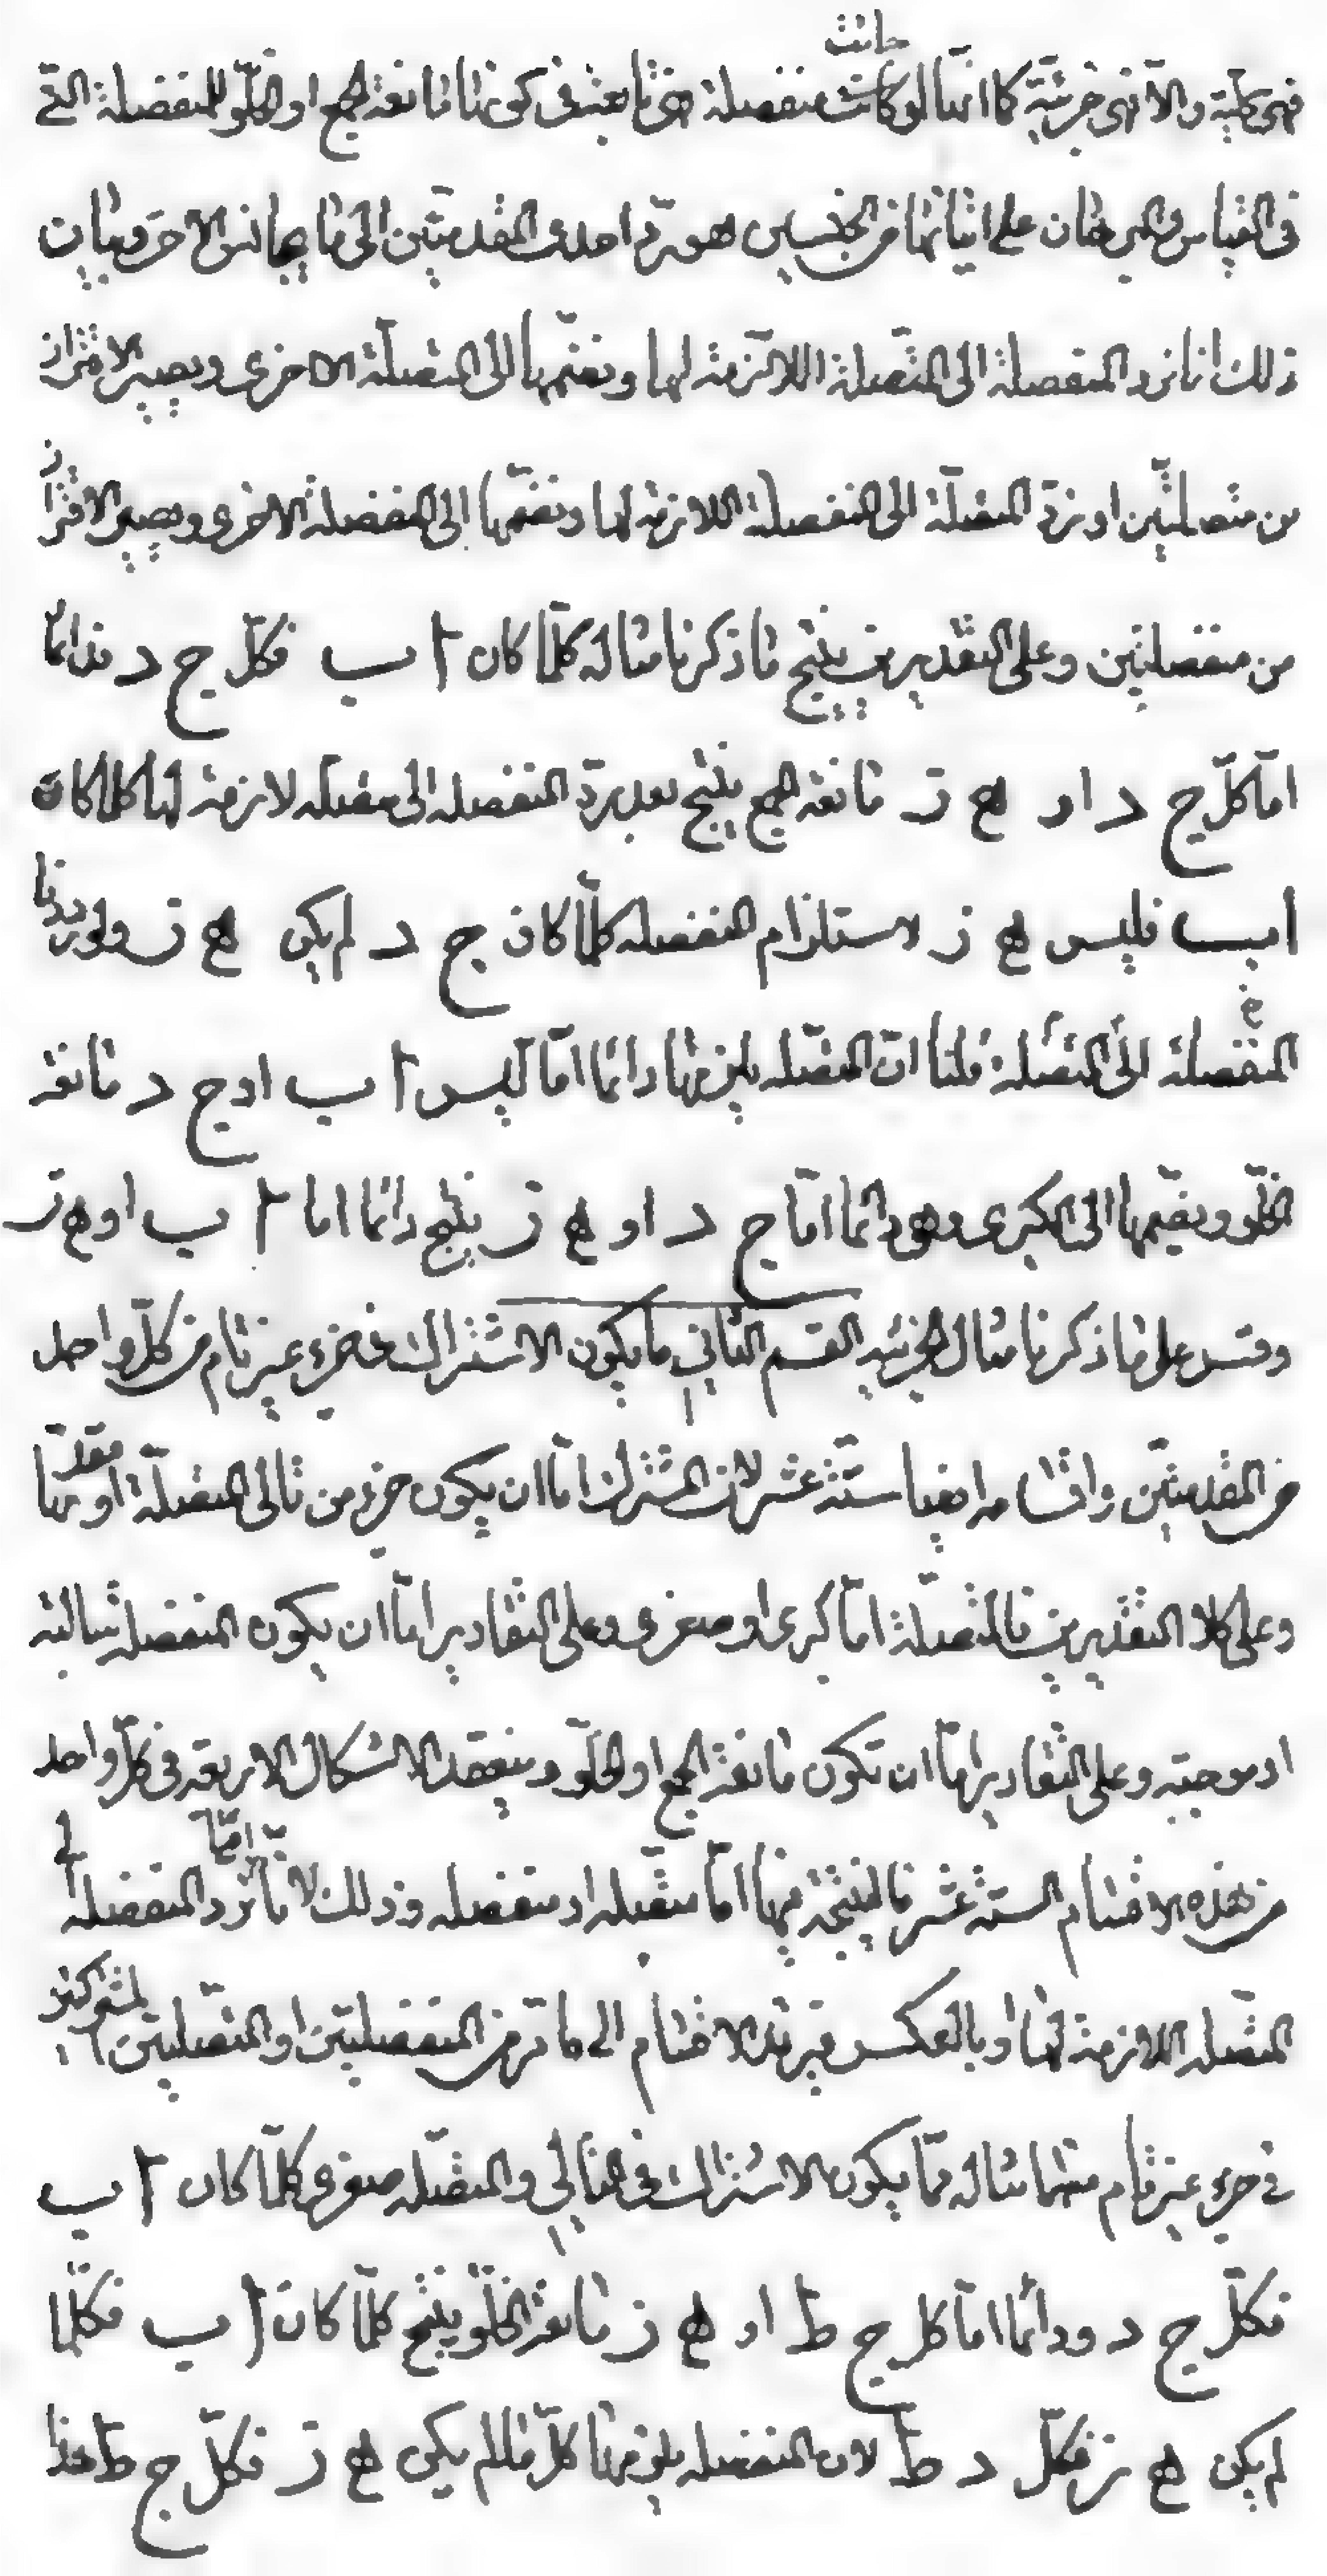 فهى كلية والا فهى جزئية كما انها لو كانت منفصلة فهى تابعة فى كونها مانعة الجمع او الخلو للمنفصلة التى
فى القياس والبرهان على انتاجهما من الجنسين هو رد احدى المقدمتين الى ما يجانس الاخرى وبيان
ذلك انا نرد المنفصلة الى المتصلة اللازمة لها ونضمها الى المتصلة الاخرى ويصير الاقتران
من متصلتين او نرد المتصلة الى المنفصلة اللازمة لها ونضمها الى المنفصلة الاخرى ويصير الاقتران
من منفصلتين وعلى التقديرين ينتج ما ذكرنا مثاله كلما كان ا ب فكل ج د ودائما
اما كل ج د او ه ز مانعة الجمع ينتج بعد رد المنفصله الى متصله لازمة لها كلما كان
ا ب فليس ه ز لاستلزام المنفصله كلما كان ج د لم يكن ه ز ولو رددنا
المتصلة الى المنفصله قلنا ان المتصله يلزمها دائما اما ليس ا ب او ج د مانعة
الخلو ونضمها الى الكبرى وهو دائما اما ج د او ه ز ينتج دائما اما ا ب او ه ز
وقس على ما ذكرنا مثال الجزئيه القسم الثانى ما يكون الاشتراك فى جزء غير تام من كل واحد
من المقدمتين واقسامه ايضا ستة عشر لان المشترك اما ان يكون جزء من تالى المتصلة او مقدمها
وعلى كلا التقديرين فالمتصلة اما كبرى او صغرى وعلى التقادير اما ان يكون المنفصله سالبة
او موجبه وعلى التقادير اما ان تكون مانعة الجمع او الخلو وينعقد الاشكال الاربعه فى كل واحد
من هذه الاقسام الستة عشر فالنتيجة فيها اما متصله او منفصله وذلك لانا اما نرد المنفصله الى
المتصله اللازمة لها او بالعكس فيرتد الاقسام الى ما مر من المنفصلتين او المتصلتين المشتركتين
فى جزء غير تام منهما مثاله مما يكون الاشتراك فى التالى والمتصله صغرى كلما كان ا ب
فكل ج د ودائما اما كل ج ط او ه ز مانعة الخلو ينتج كلما كان ا ب فكلما
لم يكن ه ز فكل د ط لان المنفصله يلزمها كل ما لم يكن ه ز فكل ج ط هذا